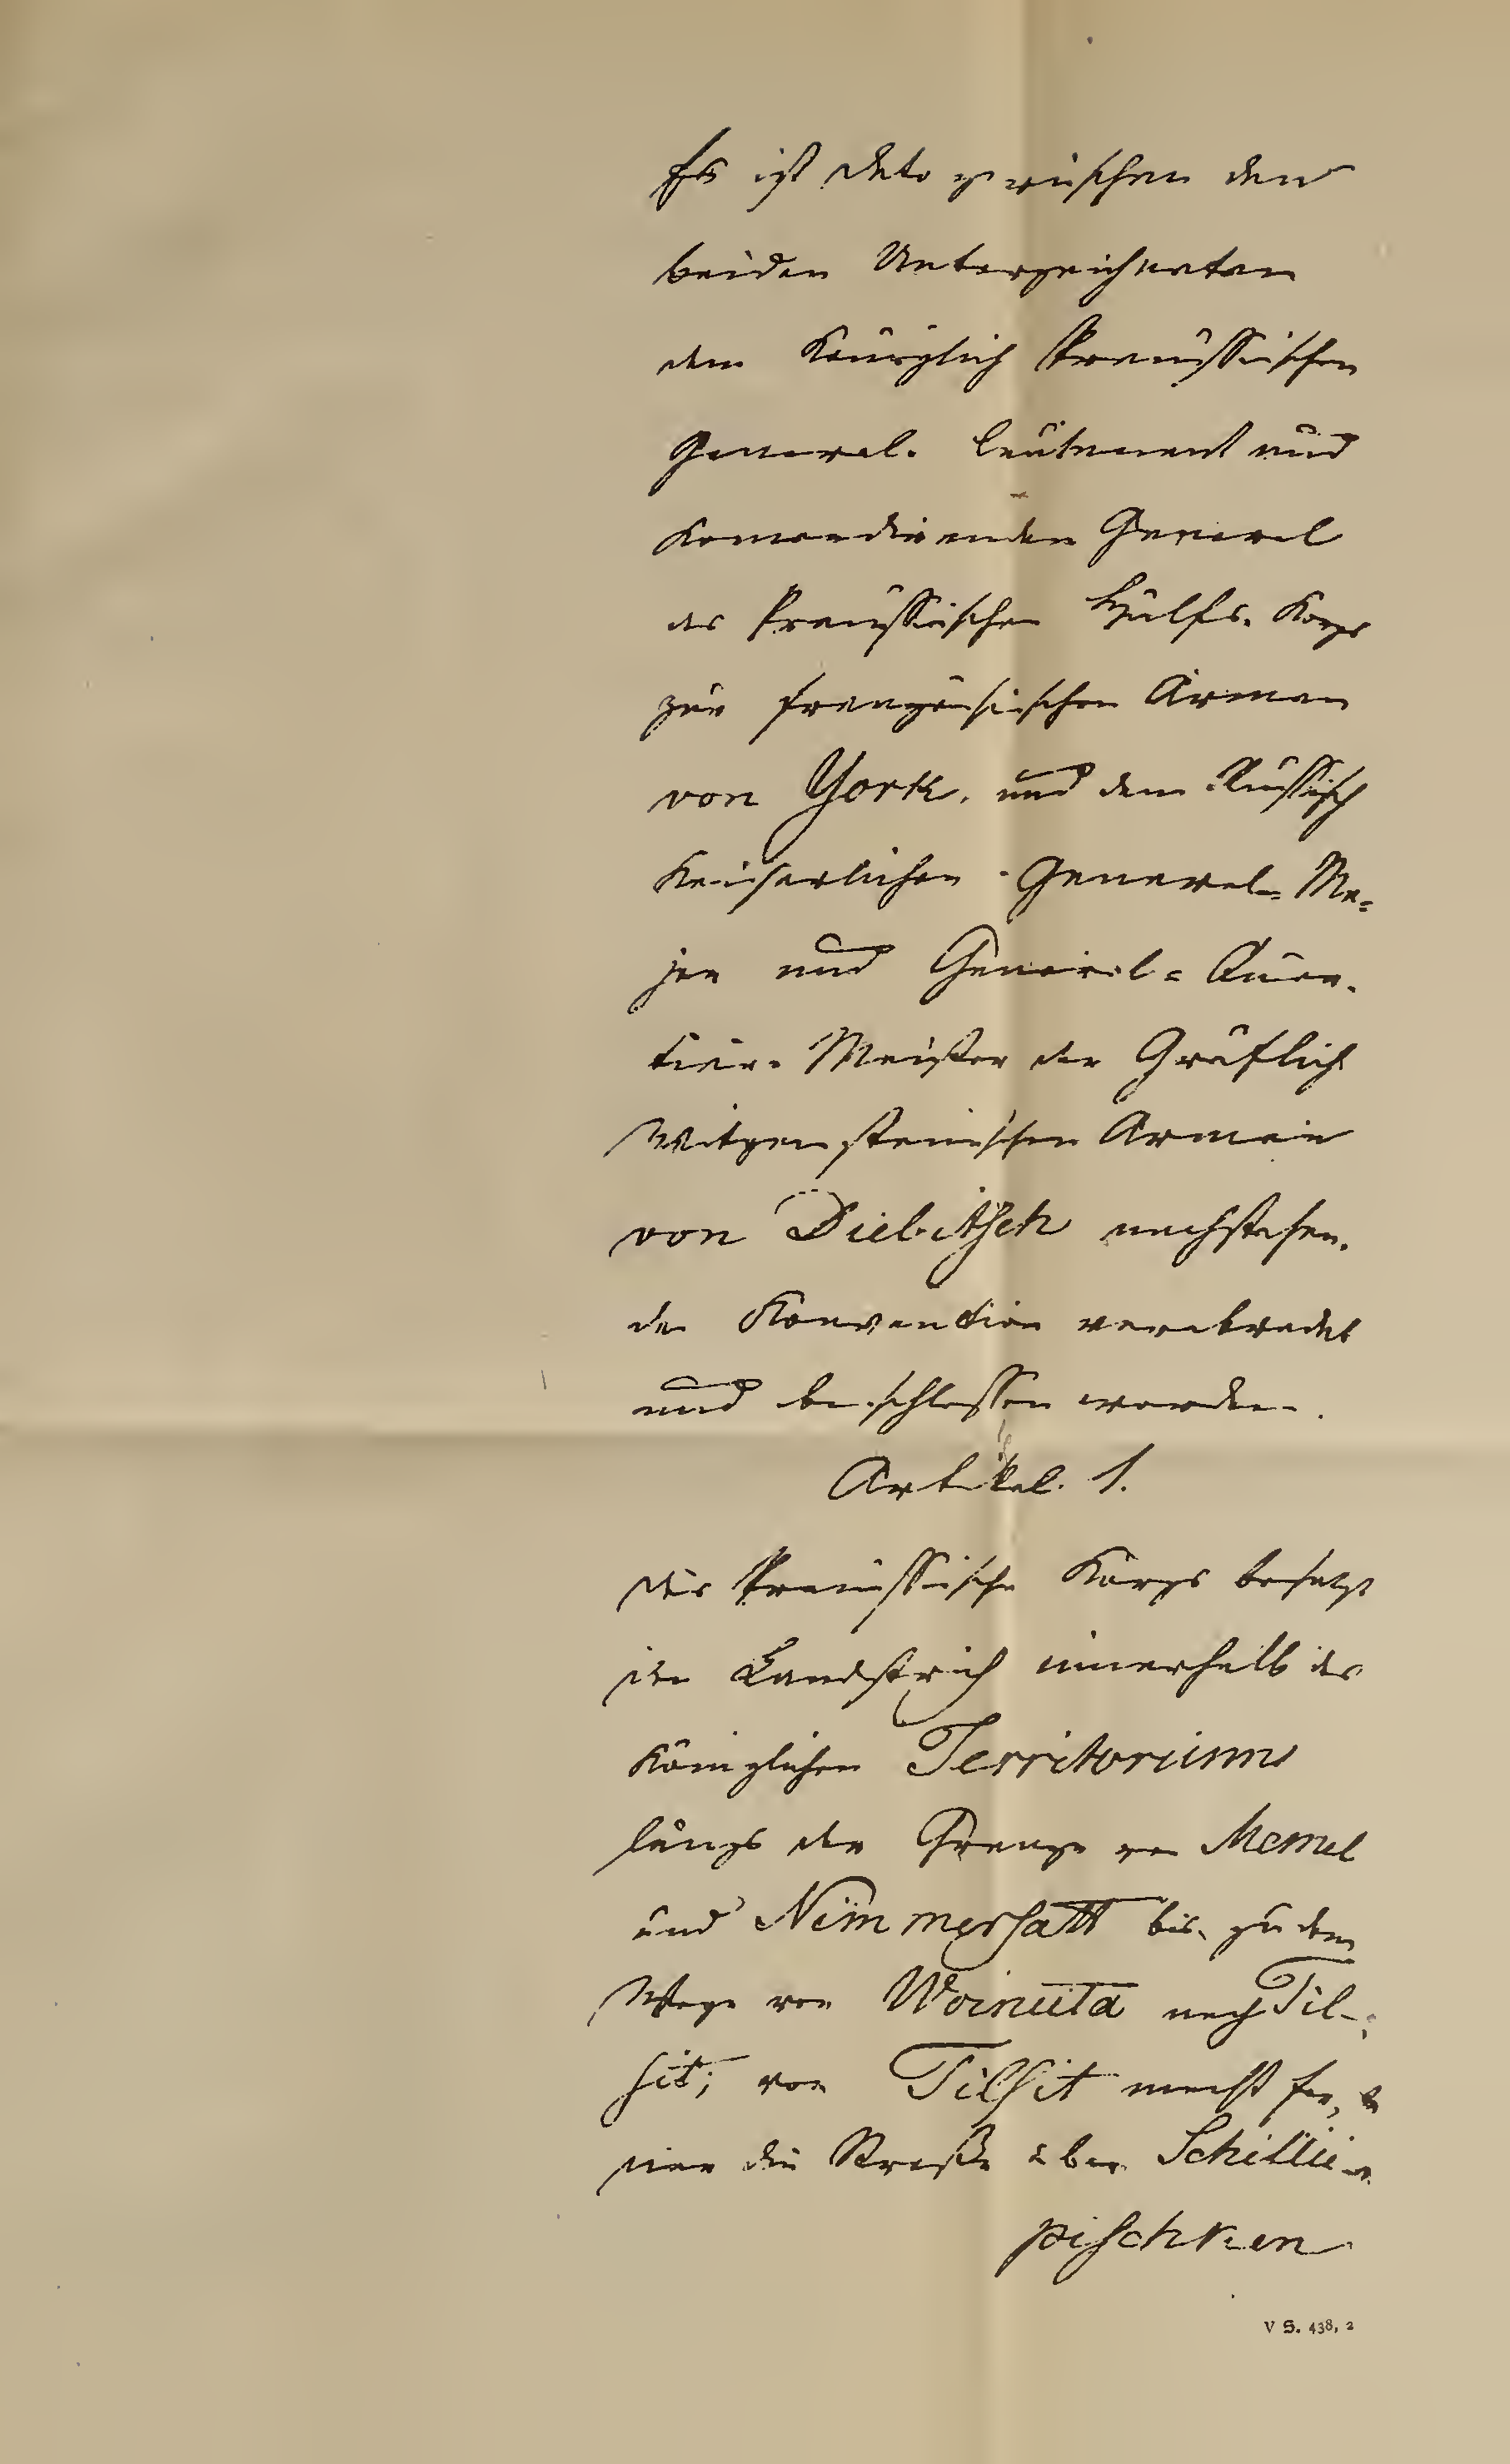 Es ist dato zwischen den
beiden Unterzeichneten
dem Königlich Preußischen
General-Leutenant und
Komandirenden General
des Preußischen Hülfs-Korps
zur französischen Armee
von York, und dem Russisch
Kaiserlichen General-Ma=
jor und General=Quar-
tier-Meister der Gräflich
Witgensteinischen Armee
von Diebitsch nachstehen-
de Konvention verabredet
und beschlossen worden.
Artikel. 1.
Das Preußische Korps besetzt
den Landstrich innerhalb des
Königlichen Territoriums
längs der Grenze von Memel
und Nimmersatt bis zu dem
Wege von Woinuta nach Til-
sit; von Tilsit macht fer-
ner die Straße über Schillu-
pischken
V S. 438, 2